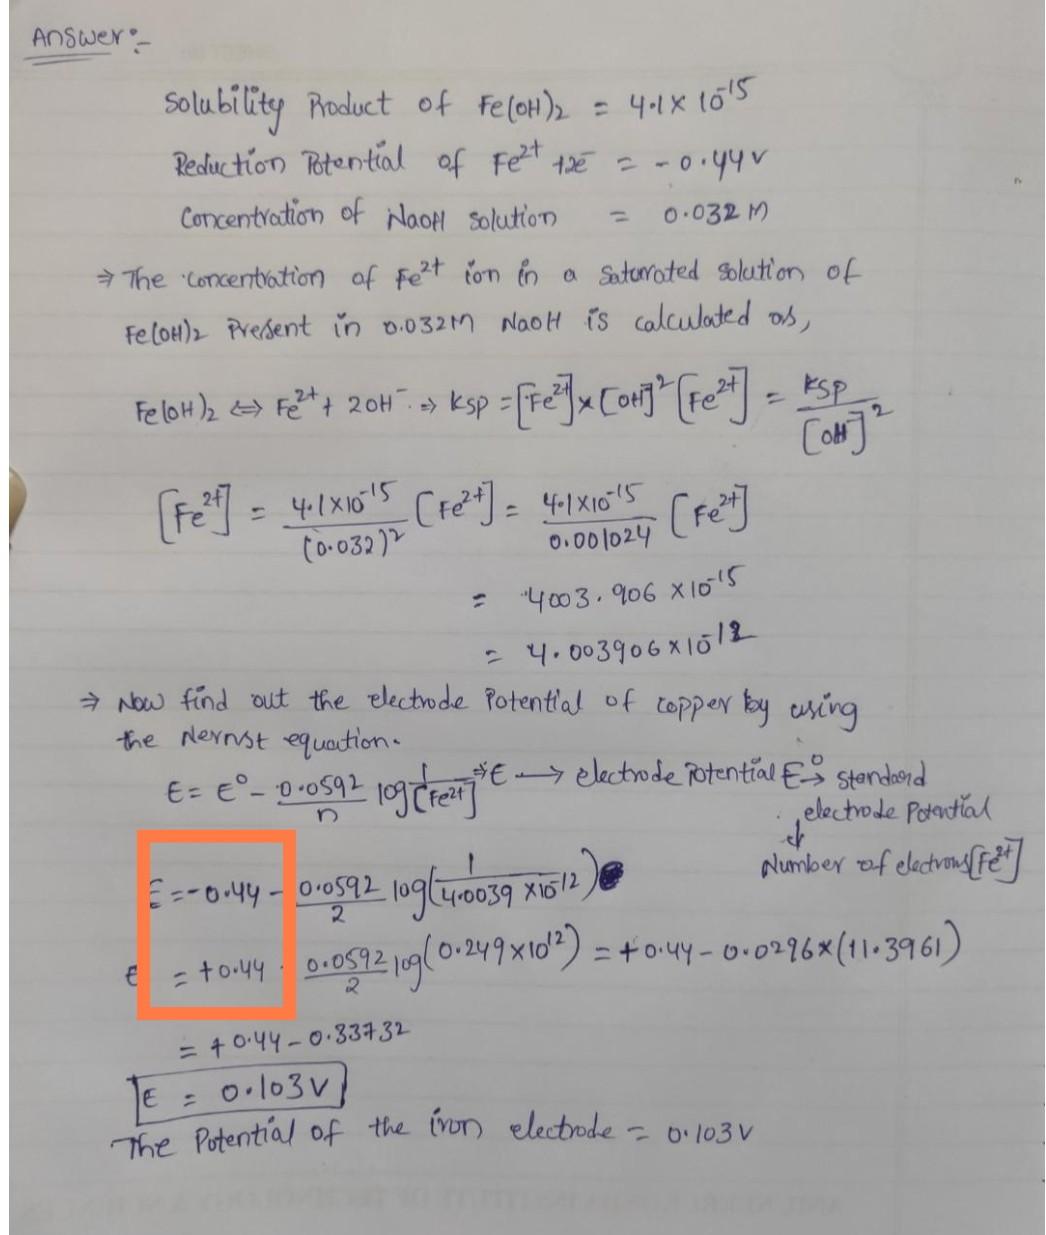 Answer:-
Solubility Product of Fe(OH)2 = 4.1 × 10^-15
Reduction Potential of Fe^2+ +2e^- = -0.44 V
Concentration of NaOH solution = 0.032 M
⇒ The concentration of Fe^2+ ion in a saturated solution of
Fe(OH)2 Present in 0.032M NaOH is calculated as,
Fe(OH)2 ⇔ Fe^2+ + 2OH^- ⇒ Ksp = [Fe^2+] × [OH]^2 [Fe^2+] = Ksp / [OH]^2
[Fe^2+] = 4.1×10^-15 / (0.032)^2 [Fe^2+] = 4.1×10^-15 / 0.001024 [Fe^2+]
= 4003.906 × 10^-15
= 4.003906 × 10^-12
⇒ Now find out the electrode Potential of copper by using
the Nernst equation.
E = E° - 0.0592 / n log 1 / [Fe^2+] ⇒ E → electrode Potential E° → standard
electrode Potential
Number of electrons [Fe^2+]
E = -0.44 - 0.0592 / 2 log (1 / 4.0039 × 10^-12)
E = +0.44 - 0.0592 / 2 log (0.249 × 10^12) = +0.44 - 0.0296 × (11.3961)
= +0.44 - 0.33732
E = 0.103 V
The Potential of the iron electrode = 0.103 V